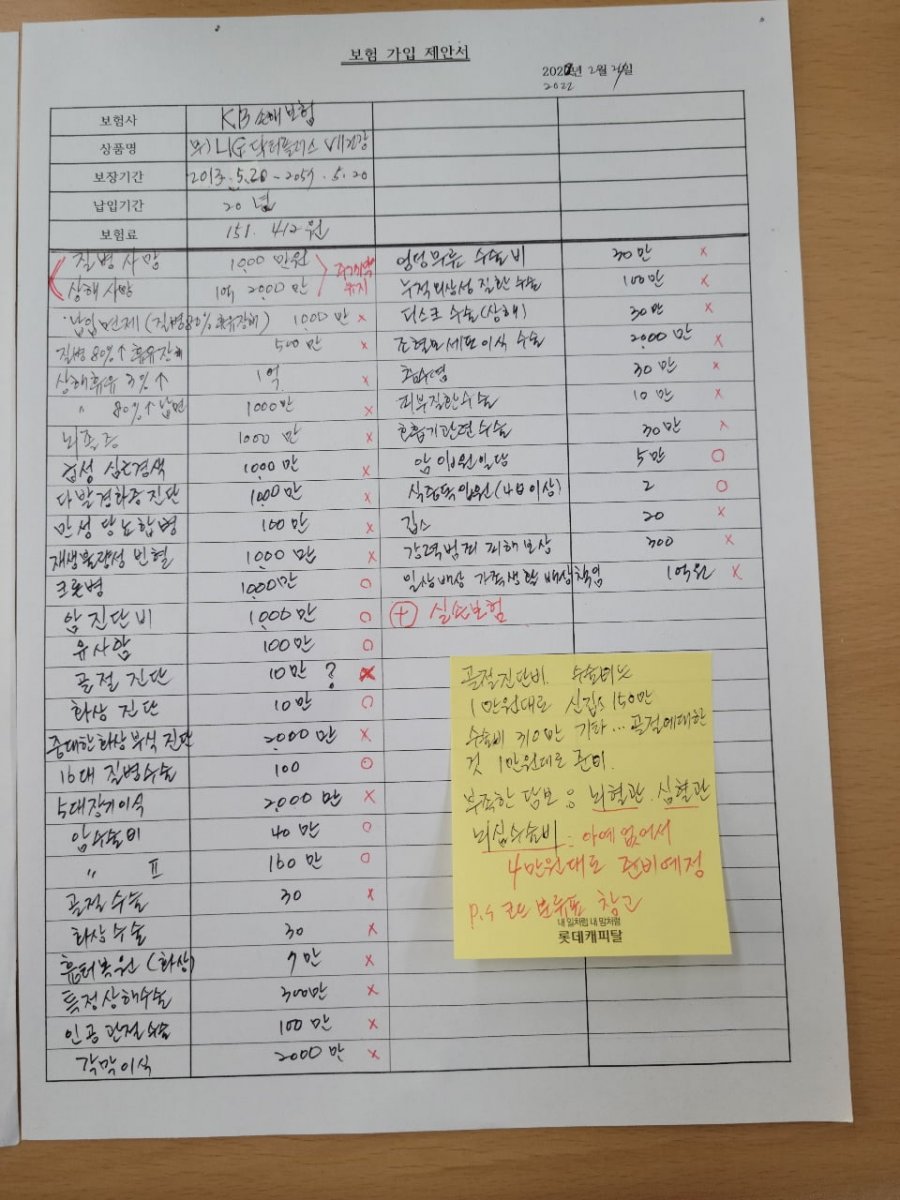 보험 가입 제안서
2022년 2월 24일
2022
보험사 KB 손해보험
상품명 무) LIG 닥터플러스 건강
보장기간 2013. 5. 20 - 2057. 5. 20
납입기간 20년
보험료 151. 412원
질병사망 1000만원
상해사망 1억 2000만
유지
납입면제 (질병80% 후유장해) 1000만 x
질병 80%↑ 후유장해 500만 x
상해후유 3%↑ 1억 x
" 80%↑ 납면 1000만 x
뇌졸중 1000만 x
급성 심근경색 1000만 x
다발경화증 진단 1000만 x
만성 당뇨합병 100만 x
재생불량성 빈혈 1000만 x
크론병 1000만 O
암 진단비 1000만 O
유사암 100만 O
골절 진단 10만 ? x
화상 진단 10만 O
중대한 화상부식 진단 2000만 x
16대 질병수술 100 O
5대장기이식 2000만 x
암수술비 40만 O
" II 160만 O
골절수술 30 x
화상수술 30 x
흉터복원 (화상) 7만 x
특정상해수술 300만 x
인공관절수술 100만 x
각막이식 2000만 x
수술비 30만 x
누적외상성 질환 수술 100만 x
디스크 수술(상해) 30만 x
조혈모세포이식 수술 2000만 x
30만 x
피부질환수술 10만 x
호흡기관련수술 30만 x
암 입원일당 5만 O
식중독입원(4일이상) 2 O
깁스 20 x
강력범죄 피해보상 300 x
일상배상 가족생활배상책임 1억원 x
+ 실손보험
골절진단비. 수술비또
1만원대로 신깁스150만
수술비 310만 기타... 골절에대한
것 1만원대로 준비.
부족한 담보 : 뇌혈관. 심혈관
뇌심수술비 : 아예 없어서
4만원대로 준비예정
P.S 코드 분류표 참고
내 일처럼 내 맘처럼
롯데캐피탈